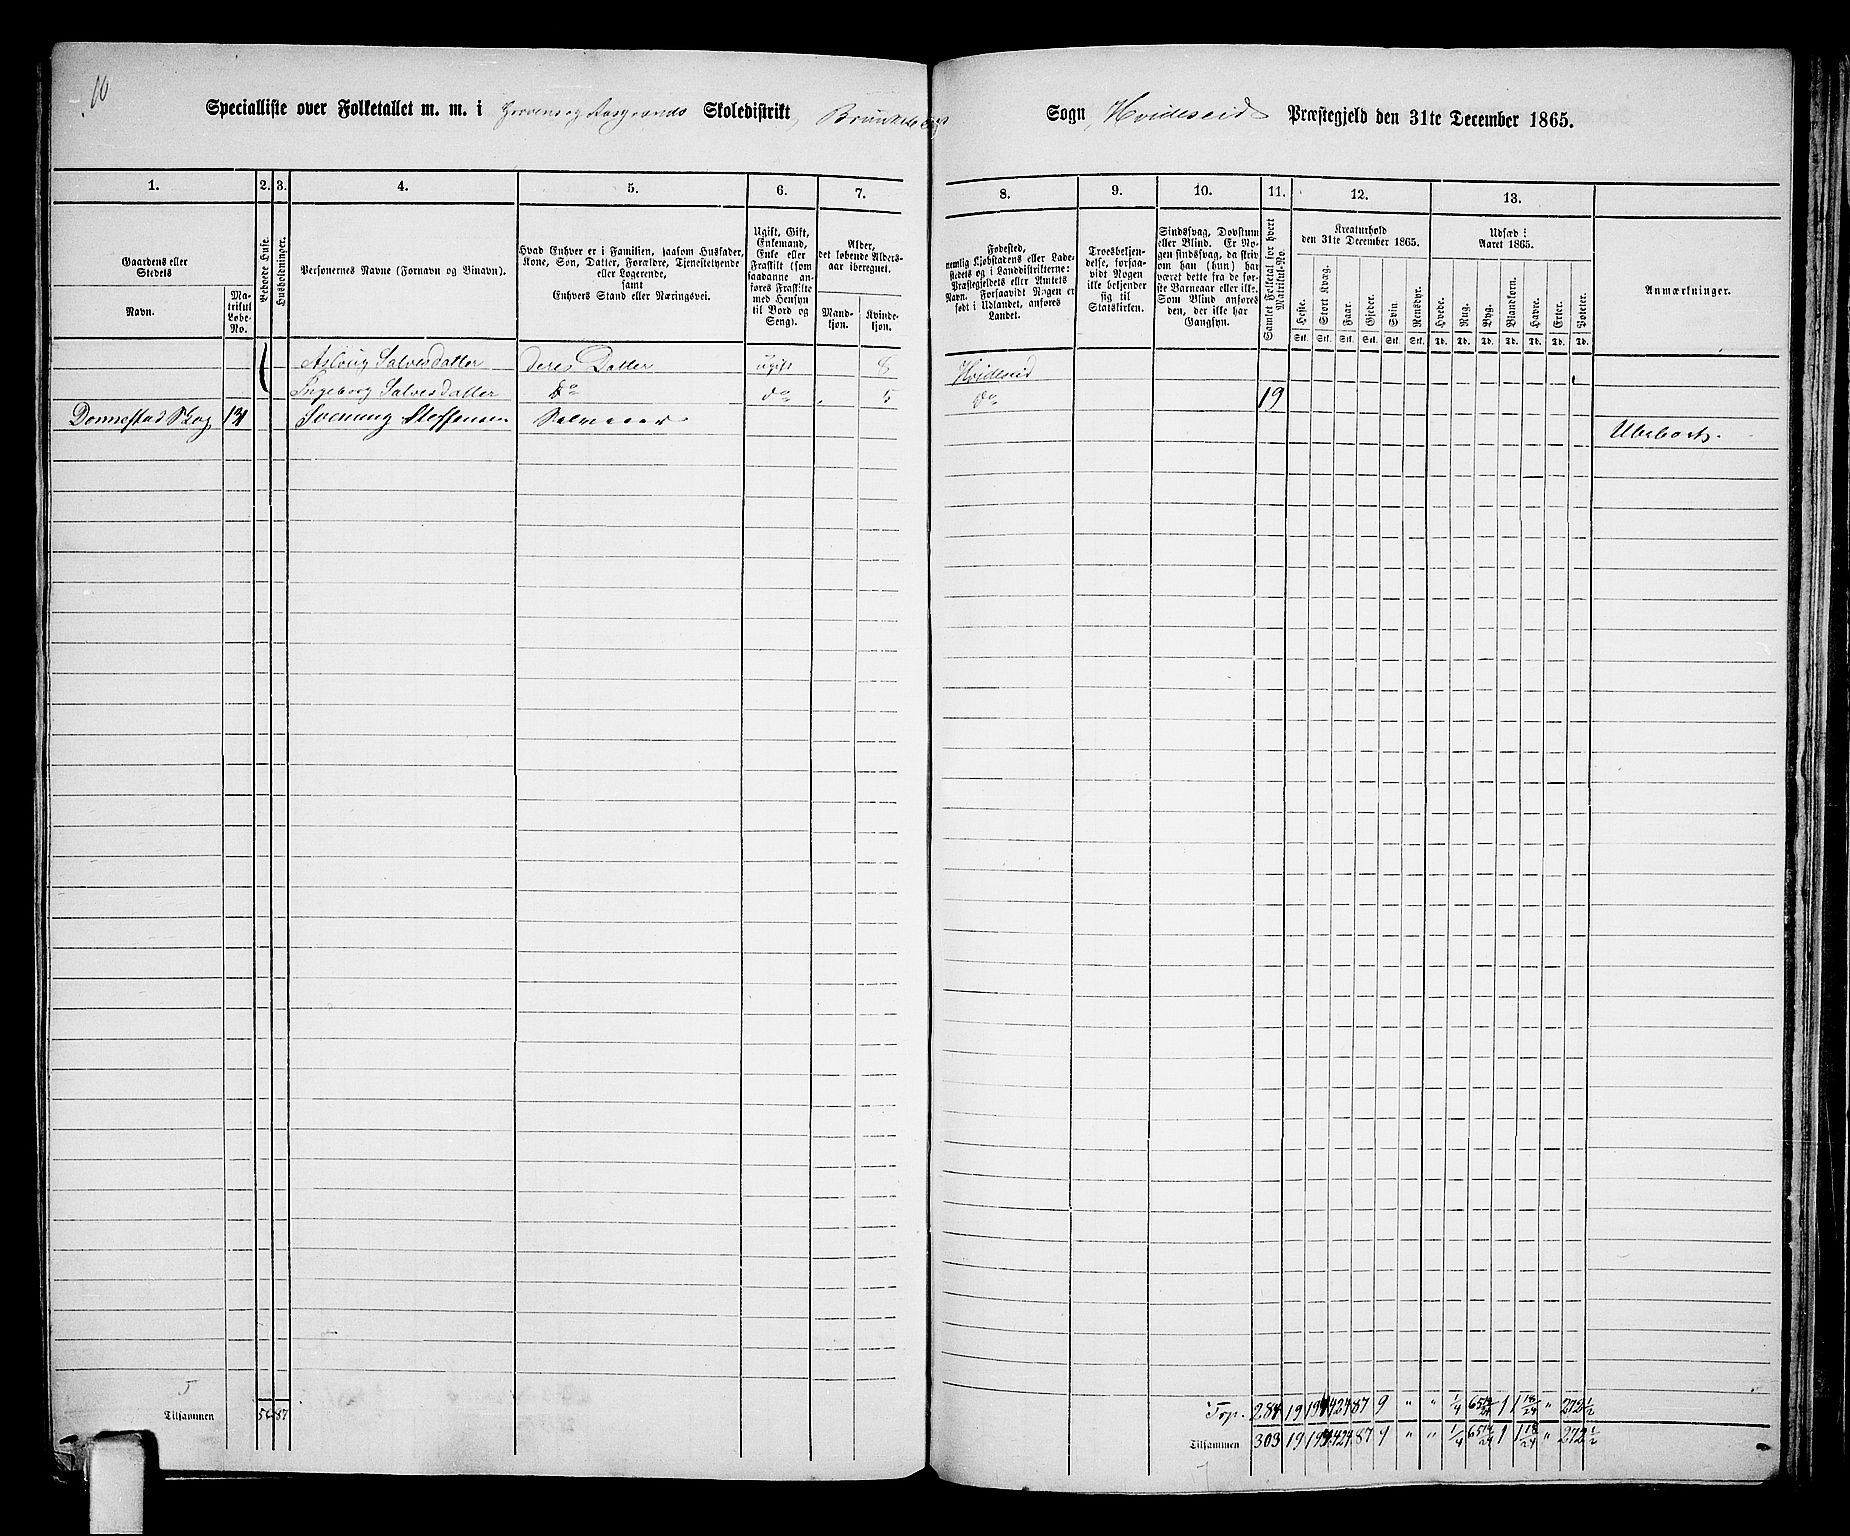 10
Specialliste over Folketallet m. m. i Skoledistrikt, Brunkebergs Sogn, Hvideseid Præstegjeld den 31te December 1865.
1. 2. 3. 4. 5. 6. 7. 8. 9. 10. 11. 12. 13.
Gaardens eller Stedets
Navn.
Matrikul Løbe-No.
Beboede Huse.
Husholdninger.
Personernes Navne (Fornavn og Tilnavn).
Hvad Enhver er i Familien, saasom Husfader, Kone, Søn, Datter, Forældre, Tjenestetyende eller Logerende,
samt
Enhvers Stand eller Næringsvei.
Ugift, Gift, Enkemand, Enke eller Fraskilt (som saadanne anføres Fraskilte med Hensyn til Bord og Seng).
Alder,
det løbende Aldersaar iberegnet.
Mandkjøn.
Kvindekjøn.
Fødested,
nemlig Kjøbstadens eller Ladestedets og i Landdistrikterne: Præstegjeldets eller Amtets Navn. Forsaavidt Nogen er født i Udlandet, anføres Landet.
Troesbekjendelse, forsaavidt Nogen ikke bekjender sig til Statskirken.
Sindssvag, Døvstum eller Blind. Er Nogen sindssvag, da skrives om han (hun) har været dette fra de første Barneaar eller ikke. Som Blind anføres den, der ikke har Gangsyn.
Samlet Folketal for hvert Matrikul-No.
Kreaturhold
den 31te December 1865.
Heste. Stort Kvæg. Faar. Gjeder. Svin. Rensdyr.
Stk. Stk. Stk. Stk. Stk. Stk.
Udsæd i
Aaret 1865.
Hvede. Rug. Byg. Blandkorn. Havre. Erter. Poteter.
Td. Td. Td. Td. Td. Td. Td.
Anmærkninger.
Asloug Salvesdatter deres Datter ugift 8 Hvideseid
Ingeborg Salvesdatter do do 5 do 19
Donnestad Skog 131 Svenung Steffensen Selveier Ubeboet.
5
Tilsammen 56 87
284 19 87 9 " " 1/4 1 1 18/24 " 272 1/2
Tilsammen 303 19 87 9 " " 1/4 1 1 18/24 " 272 1/2